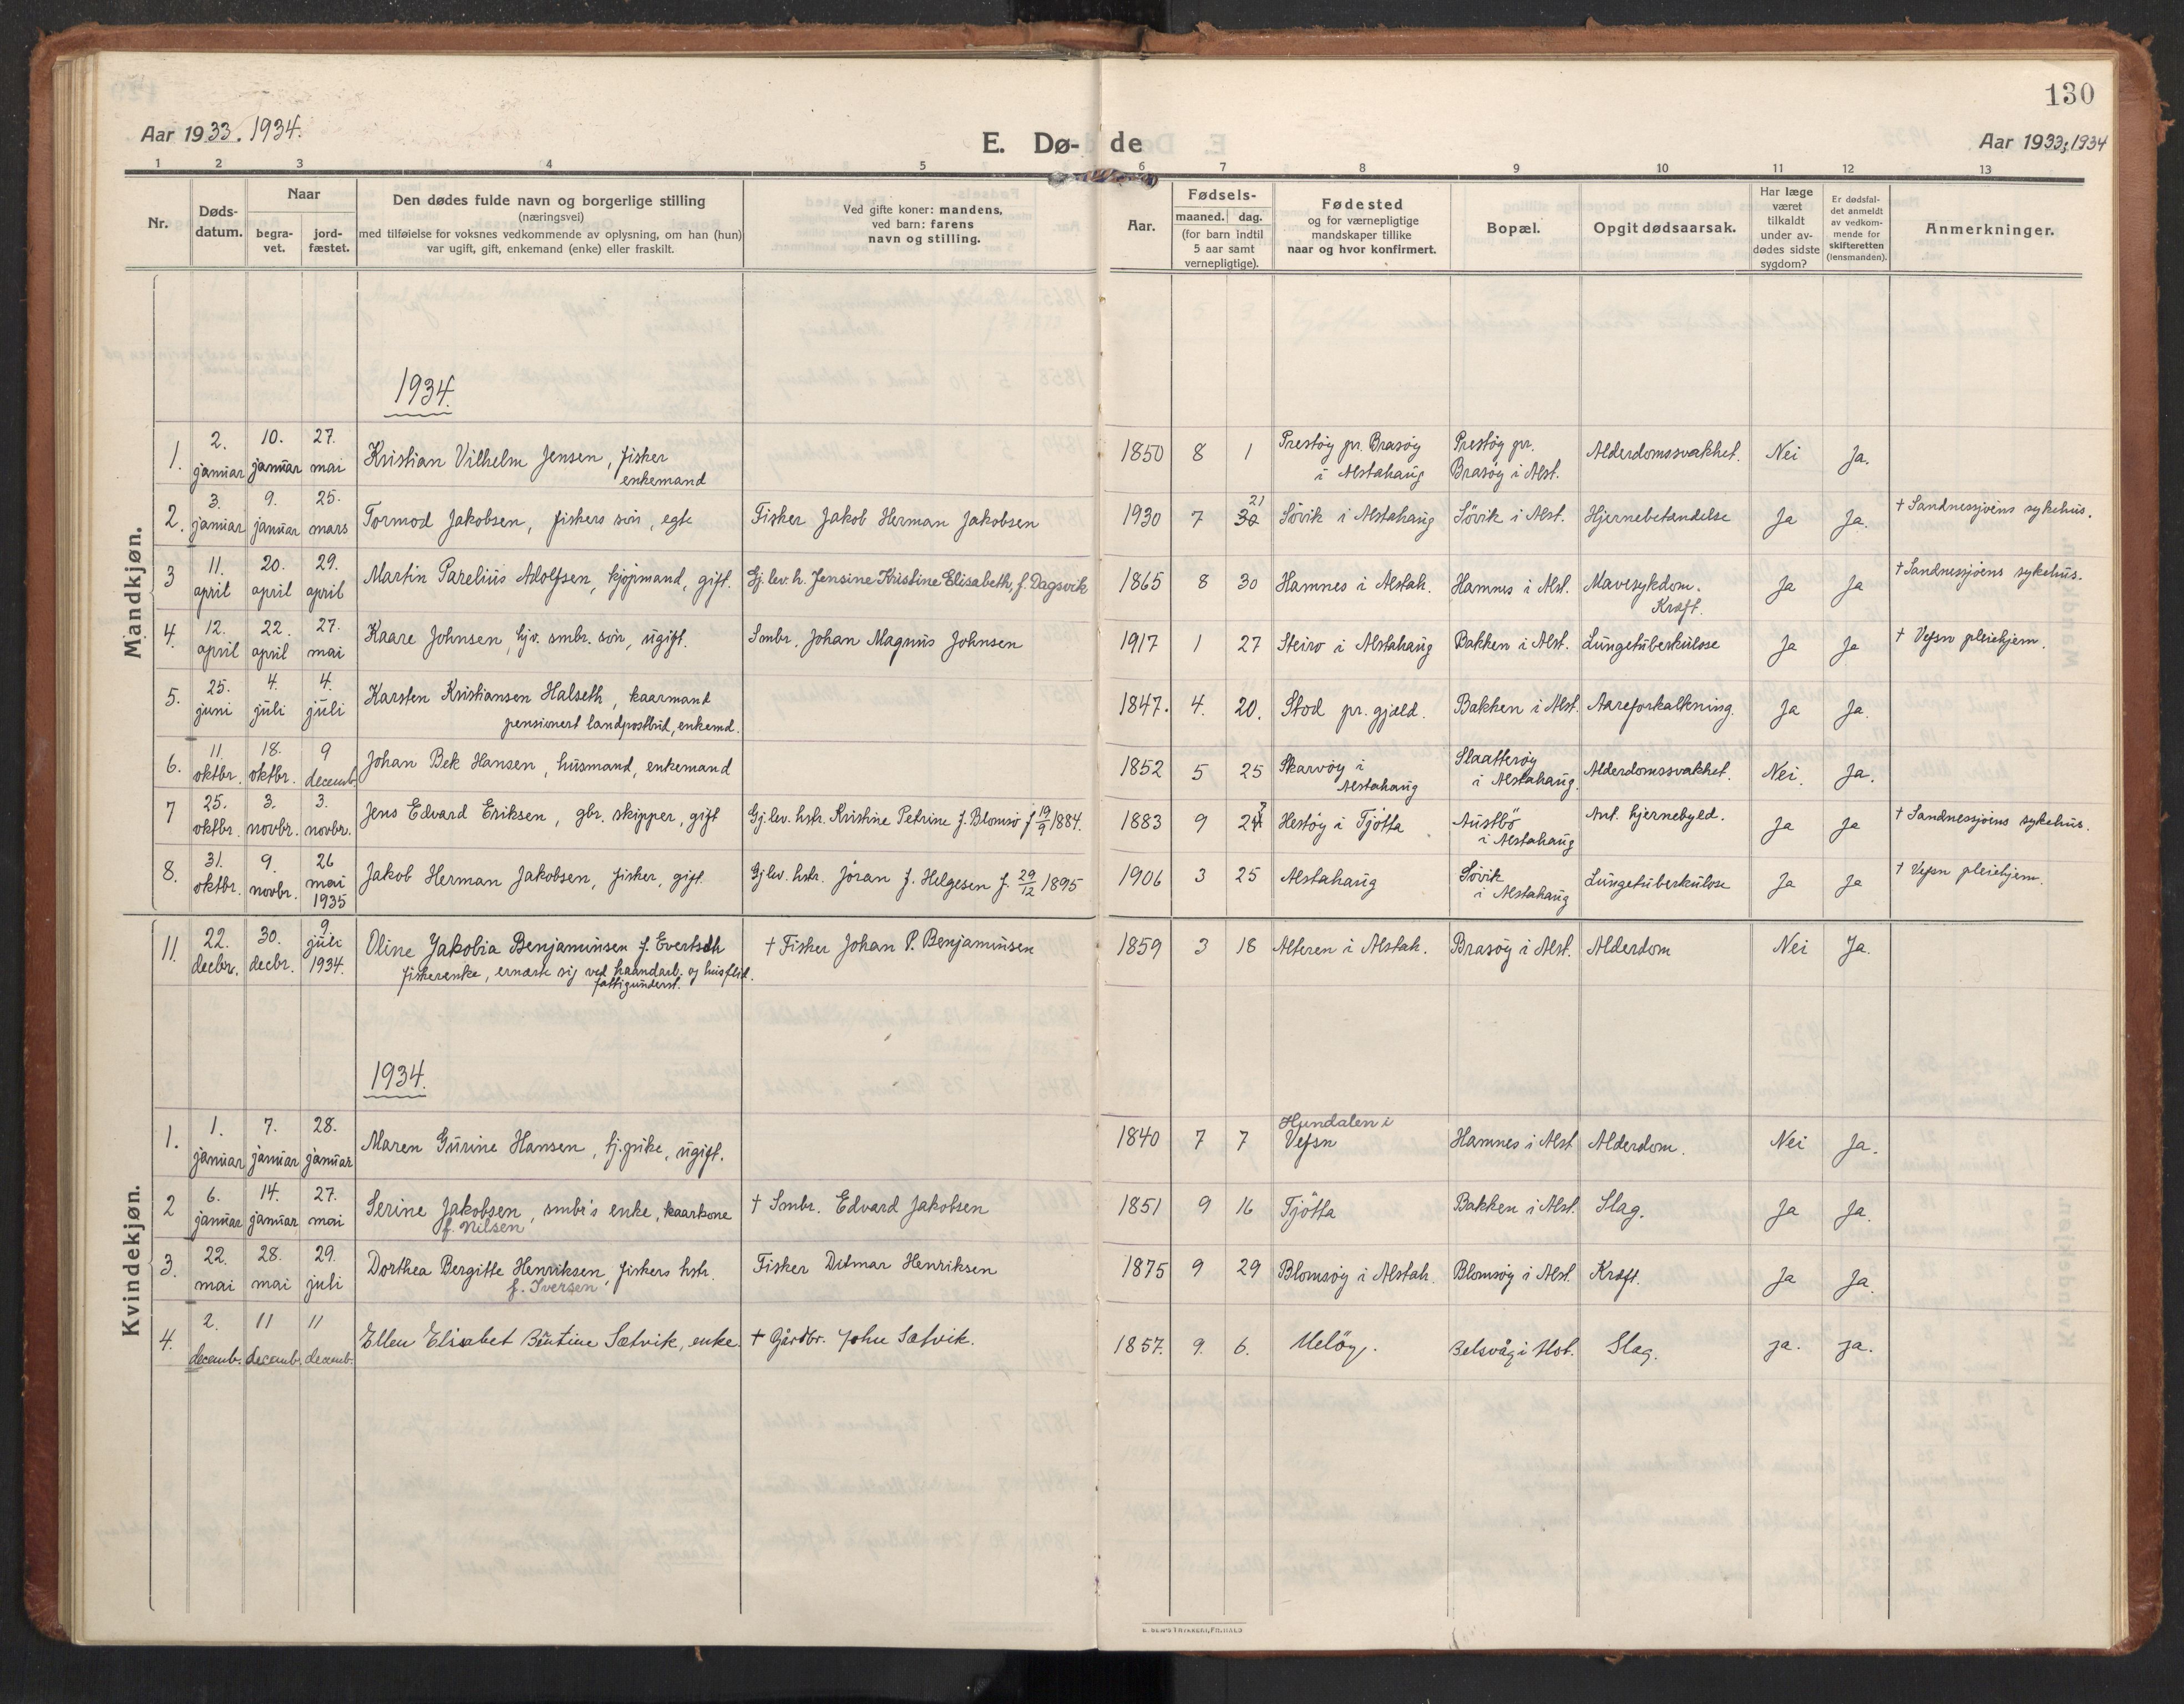 130
Aar 1933. 1934.
E. Dø- de
Aar 1933; 1934
1 2 3 4 5 6 7 8 9 10 11 12 13
Nr.
Døds-
datum.
Naar
begra-
vet.
jord-
fæstet.
Den dødes fulde navn og borgerlige stilling
(næringsvei)
med tilføielse for voksnes vedkommende av oplysning, om han (hun)
var ugift, gift, enkemand (enke) eller fraskilt.
Ved gifte koner: mandens,
ved barn: farens
navn og stilling.
Aar.
Fødsels-
maaned. dag.
(for barn indtil
5 aar samt
vernepligtige).
Fødested
og for værnepligtige
mandskaper tillike
naar og hvor konfirmert.
Bopæl.
Opgit dødsaarsak.
Har læge
været
tilkaldt
under av-
dødes sidste
sygdom?
Er dødsfal-
det anmeldt
av vedkom-
mende for
skifteretten
(lensmanden).
Anmerkninger.
Mandkjøn.
1934.
1. 2. januar 10. januar 27. mai Kristian Vilhelm Jensen, fisker enkemand 1850 8 1 Prestöy pr. Brasöy i Alstahaug Prestöy pr. Brasöy i Alst. Alderdomssvakhet. Nei Ja.
2. 3. januar 9. januar 25. mars Tormod Jakobsen, fiskers sön, egte Fisker Jakob Herman Jakobsen 1930 7 30 21 Sövik i Alstahaug Sövik i Alst. Hjernebetændelse Ja Ja. + Sandnessjöens sykehus.
3 11. april 20. april 29. april Martin Parelius Adolfsen, kjöpmand, gift. Gj. lev. h. Jensine Kristine Elisabeth, f. Dagsvik 1865 8 30 Hamnes i Alstah. Hamnes i Alst. Mavesykdom. Kræft. Ja Ja + Sandnessjöens sykehus.
4. 12. april 22. april 27. mai Kaare Johnsen, hjv. smbr. sön, ugift. Smbr. Johan Magnus Johnsen 1917 1 27 Steiro i Alstahaug Bakken i Alst. Lungetuberkulose Ja Ja + Vefsn pleiehjem.
5. 25. juni 4. juli 4. juli Karsten Kristiansen Halseth, kaarmand pensionert landpostbud, enkemd. 1847. 4. 20. Stod pr. gjæld. Bakken i Alst. Aareforkalkning. Ja Ja.
6. 11. oktbr. 18. oktbr. 9 decemb. Johan Bek Hansen, husmand, enkemand 1852 5 25 Skarvöy i Alstahaug Slaatteröy i Alstahaug. Alderdomssvakhet. Nei. Ja.
7 25. oktbr. 3. novbr. 3. novbr. Jens Edvard Eriksen, gbr. skipper, gift Gj. lev. hstr. Kristine Petrine f. Blomsö f 19/9 1884. 1883 9 24 Hestöy i Tjötta Austbö i Alstahaug Ant. hjernebyld. Ja Ja + Sandnessjöens sykehus.
8. 31. oktbr. 9. novbr. 26 mai 1935 Jakob Herman Jakobsen, fisker, gift. Gj. lev. hstr. Jöran f. Helgesen f. 29/12 1895 1906 3 25 Alstahaug Sövik i Alstahaug Lungetuberkulose Ja Ja + Vefsn pleiehjem.
Kvindekjøn.
11. 22. decbr. 30. decbr. 9. juli 1934. Oline Jakobia Benjaminsen f. Evertsdt fiskerenke, ernærte sig ved haandarb. og husflid. fattigunderst. + Fisker Johan P. Benjaminsen 1859 3 18 Alteren i Alstah. Brasöy i Alst. Alderdom Nei Ja.
1934.
1. 1. januar 7. januar 28. januar Maren Gurine Hansen, tj. pike, ugift. 1840 7 7 Hundalen i Vefsn Hamnes i Alst Alderdom. Nei Ja.
2 6. januar 14. januar 27. mai Serine Jakobsen, smbr's enke, kaarkone f. Nilsen + Smbr. Edvard Jakobsen 1851 9 16 Tjötta Bakken i Alst. Slag. Ja Ja.
3. 22. mai 28. mai 29. juli Dorthea Bergitte Henriksen, fiskers hstr. f. Iversen Fisker Ditmar Henriksen 1875 9 29 Blomsöy i Alstah. Blomsöy i Alst. Kræft. Ja Ja.
4. 2. decemb. 11 decemb. 11 decemb. Ellen Elisabet Bentine Sætvik, enke. + Gårdbr. John Sætvik. 1857. 9. 6. Melöy. Belsvåg i Alst. Slag. ja. ja.